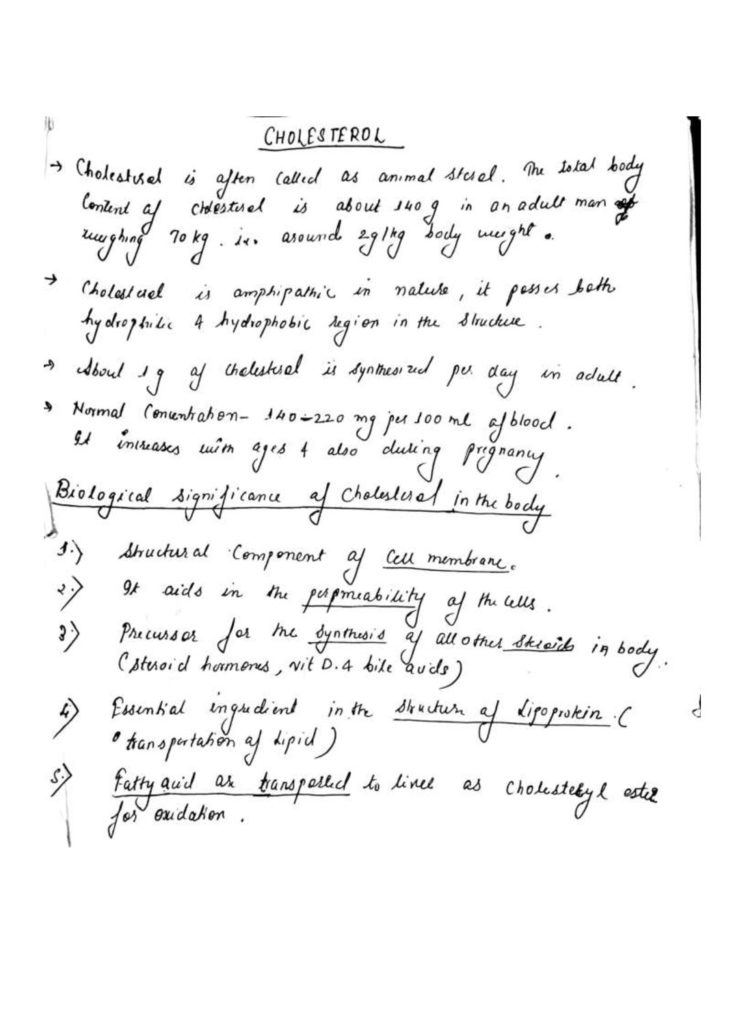 CHOLESTEROL
→ Cholesterol is often called as animal sterol. The total body
Content of cholesterol is about 140 g in an adult man
weighing 70 kg. i.e. around 2g/kg body weight.
→ Cholesterol is amphipathic in nature, it posses both
hydrophilic & hydrophobic region in the structure.
→ About 1 g of cholesterol is synthesized per day in adult.
→ Normal Concentration - 140-220 mg per 100 ml of blood.
It increases with ages & also during pregnancy.
Biological significance of Cholesterol in the body
1.) Structural Component of Cell membrane.
2.) It aids in the permeability of the cells.
3.) Precursor for the synthesis of all other steroids in body.
(steroid hormones, vit D. & bile acids)
4.) Essential ingredient in the structure of lipoprotein. (
transportation of lipid)
5.) Fatty acid are transported to liver as cholesteryl ester
for oxidation.